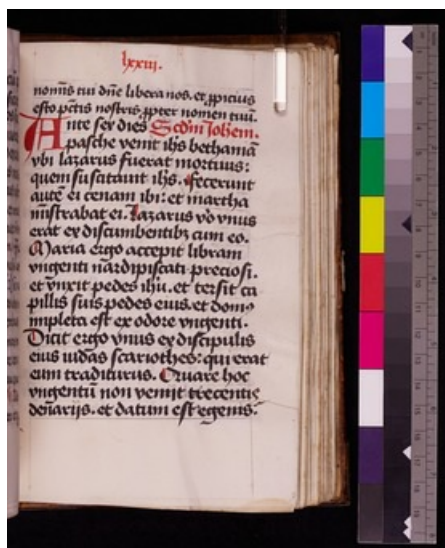 lxxiii.
nomīs tui dn̄e libera nos. et ꝓpicius
esto pctīs nostris ꝓpter nomen tuū.
Ante sex dies Scdm̄ Johem.
pasche venit ihs bethaniā
vbi lazarus fuerat mortuus:
quem suscitauit ihs. fecerunt
autē ei cenam ibi: et martha
mīstrabat ei. Lazarus vo vnus
erat ex discumbentibꝫ cum eo.
Maria ergo accepit libram
vngenti nardipistici preciosi.
et vnxit pedes ihu. et tersit ca
pillis suis pedes eius. et domꝰ
impleta est ex odore vngenti.
Dicit ergo vnus ex discipulis
eius iudas scariothes: qui erat
eum traditurus. Quare hoc
vngentū non venit trecentis
denarijs. et datum est egenis: